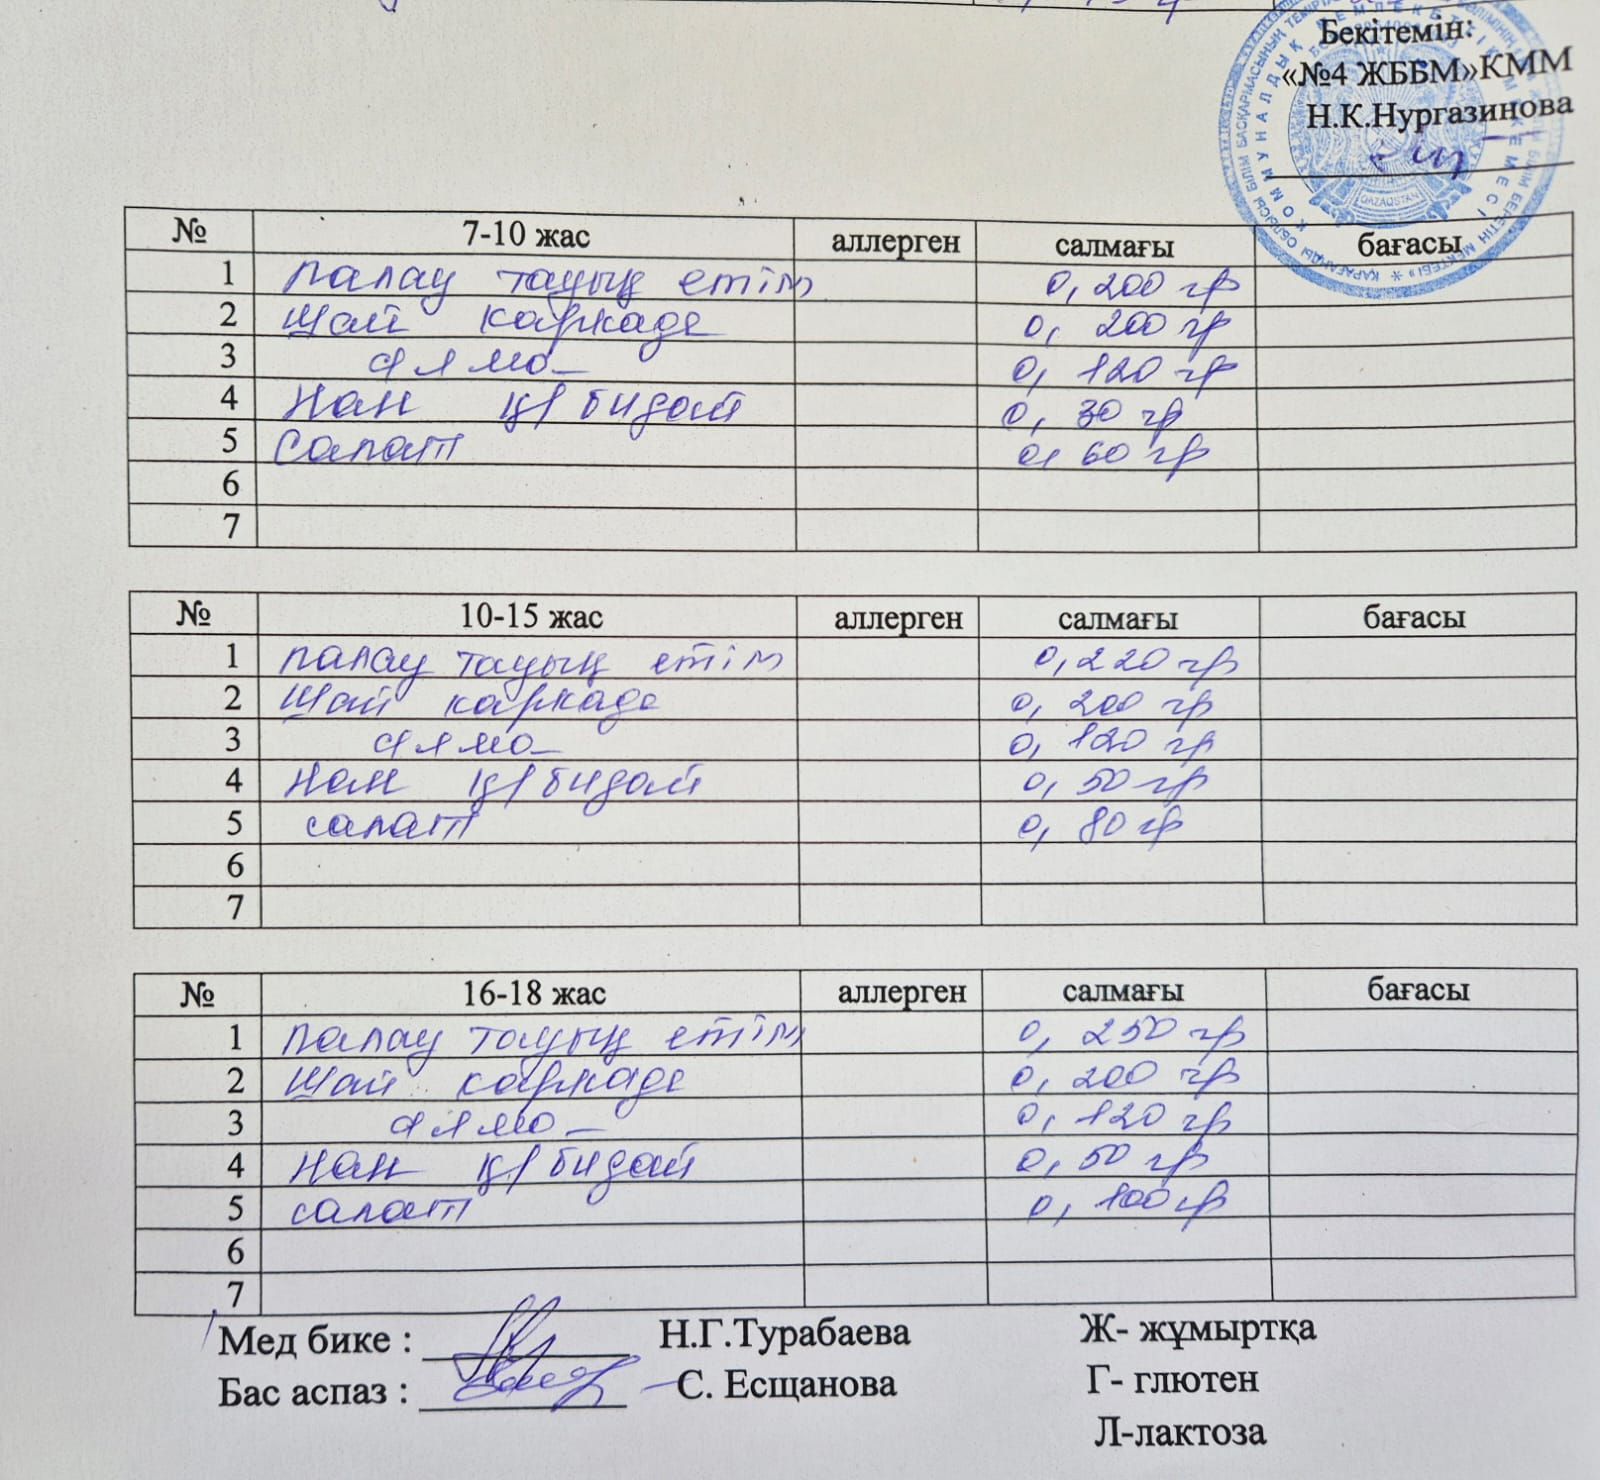 Бекітемін:
«№4 ЖББМ»КММ
Н.К.Нургазинова
№ 7-10 жас аллерген салмағы бағасы
1 палау тауық етім 0,200 гр
2 Шай каркаде 0, 200 гр
3 алма 0, 120 гр
4 Нан қ/бидай 0, 30 гр
5 Салат 0, 60 гр
6
7
№ 10-15 жас аллерген салмағы бағасы
1 палау тауық етім 0,220 гр
2 Шай каркаде 0, 200 гр
3 алма 0, 120 гр
4 Нан қ/бидай 0, 50 гр
5 салат 0, 80 гр
6
7
№ 16-18 жас аллерген салмағы бағасы
1 палау тауық етім 0, 250 гр
2 Шай каркаде 0, 200 гр
3 алма 0, 120 гр
4 Нан қ/бидай 0, 50 гр
5 салат 0, 100 гр
6
7
Мед бике : Н.Г.Турабаева Ж- жұмыртқа
Бас аспаз : С. Есщанова Г- глютен
Л-лактоза